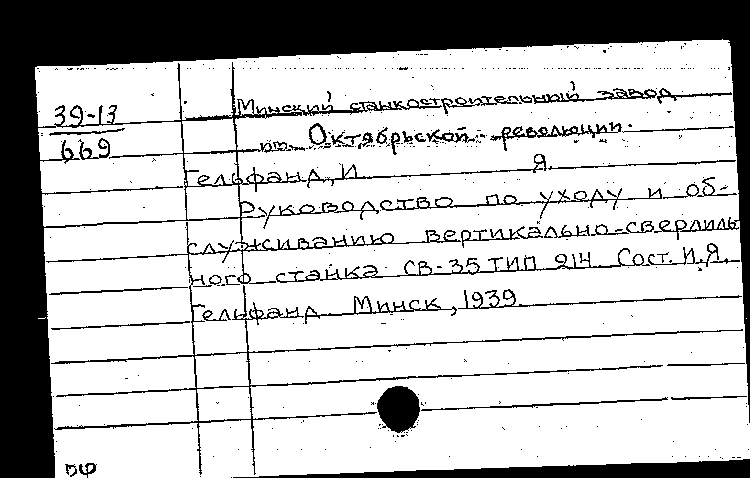 39-13
669
Минский станкостроительный завод
им. Октябрьской революции.
Гельфанд, И. Я.
Руководство по уходу и об-
служиванию вертикально-сверлиль
ного станка СВ-35 тип 214 Сост. И.Я.
Гельфанд Минск, 1939.
оф